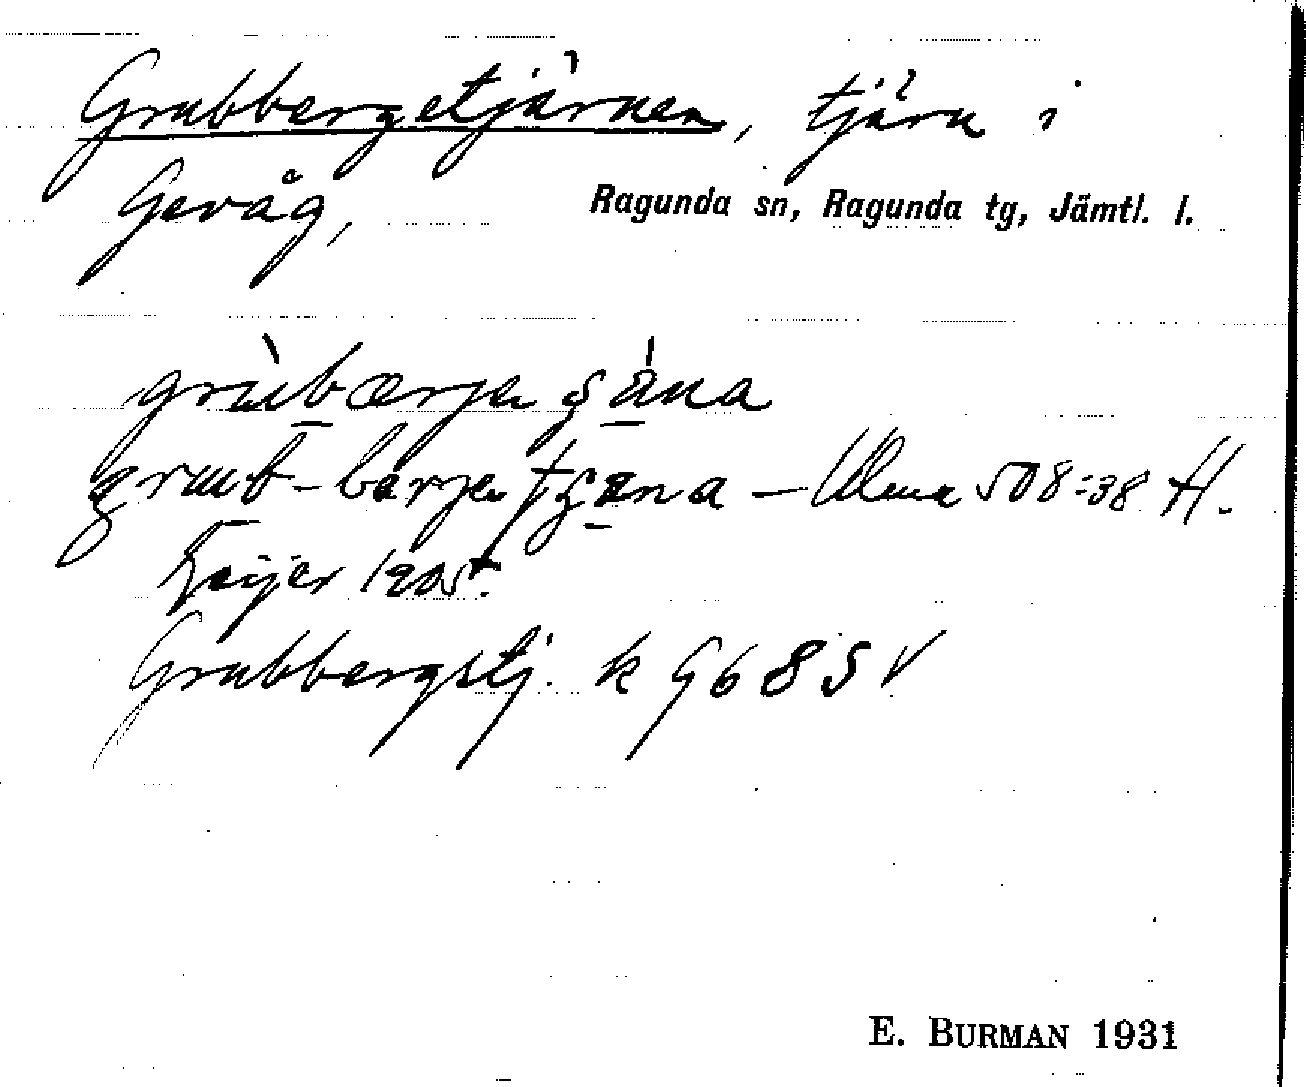 Grubbergetjärnen, tjärn i
Gevåg, Ragunda sn, Ragunda tg, Jämtl. l.
grùbærjen
grub-bärjen – Ulma 508:38 H.
Geijer 1905.
Grubbergstj. k 968 S V
E. BURMAN 1931